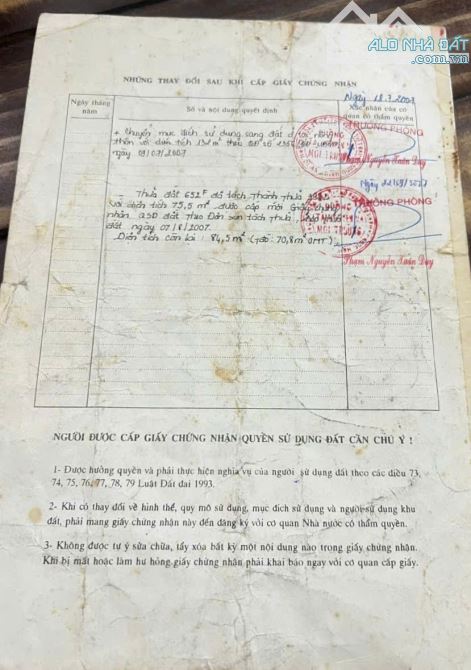 ALO NHÀ ĐẤT
.com.vn
NHỮNG THAY ĐỔI SAU KHI CẤP GIẤY CHỨNG NHẬN
Ngày tháng năm
Số và nội dung quyết định
Xác nhận của cơ quan có thẩm quyền
Ngày 18.7.2007
+ chuyển mục đích sử dụng sang đất ở tại nông
thôn với diện tích 132 m² theo số
ngày 09/07/2007
TRƯỞNG PHÒNG
MÔI TRƯỜNG
Phạm Nguyễn Xuân Duy
Ngày
- Thửa đất 652F đã tách thành thửa
với diện tích 75,5 m² được cấp mới Giấy chứng
nhận QSD đất theo Đơn xin tách thửa
đất ngày 07/8/2007.
Diện tích còn lại : 84,5 m² (70,8 m² ONT)
TRƯỞNG PHÒNG
MÔI TRƯỜNG
Phạm Nguyễn Xuân Duy
NGƯỜI ĐƯỢC CẤP GIẤY CHỨNG NHẬN QUYỀN SỬ DỤNG ĐẤT CẦN CHÚ Ý !
1- Được hưởng quyền và phải thực hiện nghĩa vụ của người sử dụng đất theo các điều 73,
74, 75, 76, 77, 78, 79 Luật Đất đai 1993.
2- Khi có thay đổi về hình thể, quy mô sử dụng, mục đích sử dụng và người sử dụng khu
đất, phải mang giấy chứng nhận này đến đăng ký với cơ quan Nhà nước có thẩm quyền.
3- Không được tự ý sửa chữa, tẩy xóa bất kỳ một nội dung nào trong giấy chứng nhận.
Khi bị mất hoặc làm hư hỏng giấy chứng nhận phải khai báo ngay với cơ quan cấp giấy.